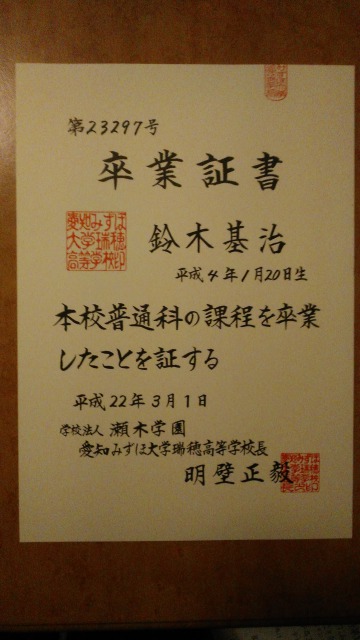 第23297号
卒業証書
愛知みずほ
大学瑞穂
高等学校印
鈴木基治
平成4年1月20日生
本校普通科の課程を卒業
したことを証する
平成22年3月1日
学校法人 瀬木学園
愛知みずほ大学瑞穂高等学校長
明壁正毅